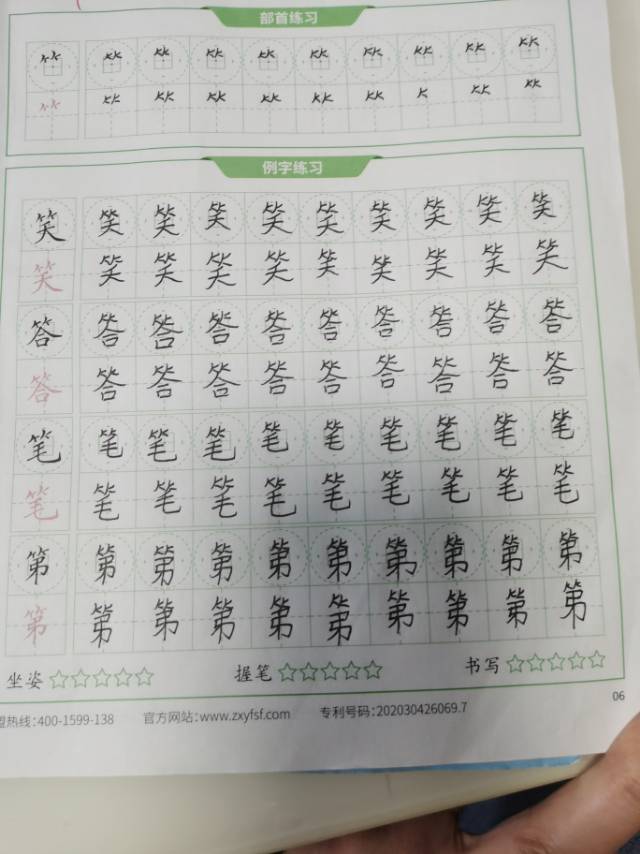 部首练习
⺮ ⺮ ⺮ ⺮ ⺮ ⺮ ⺮ ⺮ ⺮ ⺮
⺮ ⺮ ⺮ ⺮ ⺮ ⺮ ⺮ ⺮ ⺮
例字练习
笑 笑 笑 笑 笑 笑 笑 笑 笑 笑
笑 笑 笑 笑 笑 笑 笑 笑 笑 笑
答 答 答 答 答 答 答 答 答 答
答 答 答 答 答 答 答 答 答 答
笔 笔 笔 笔 笔 笔 笔 笔 笔 笔
笔 笔 笔 笔 笔 笔 笔 笔 笔 笔
第 第 第 第 第 第 第 第 第 第
第 第 第 第 第 第 第 第 第 第
坐姿☆☆☆☆☆ 握笔☆☆☆☆☆ 书写☆☆☆☆☆
06
盟热线:400-1599-138 官方网站:www.zxyfsf.com 专利号码:202030426069.7